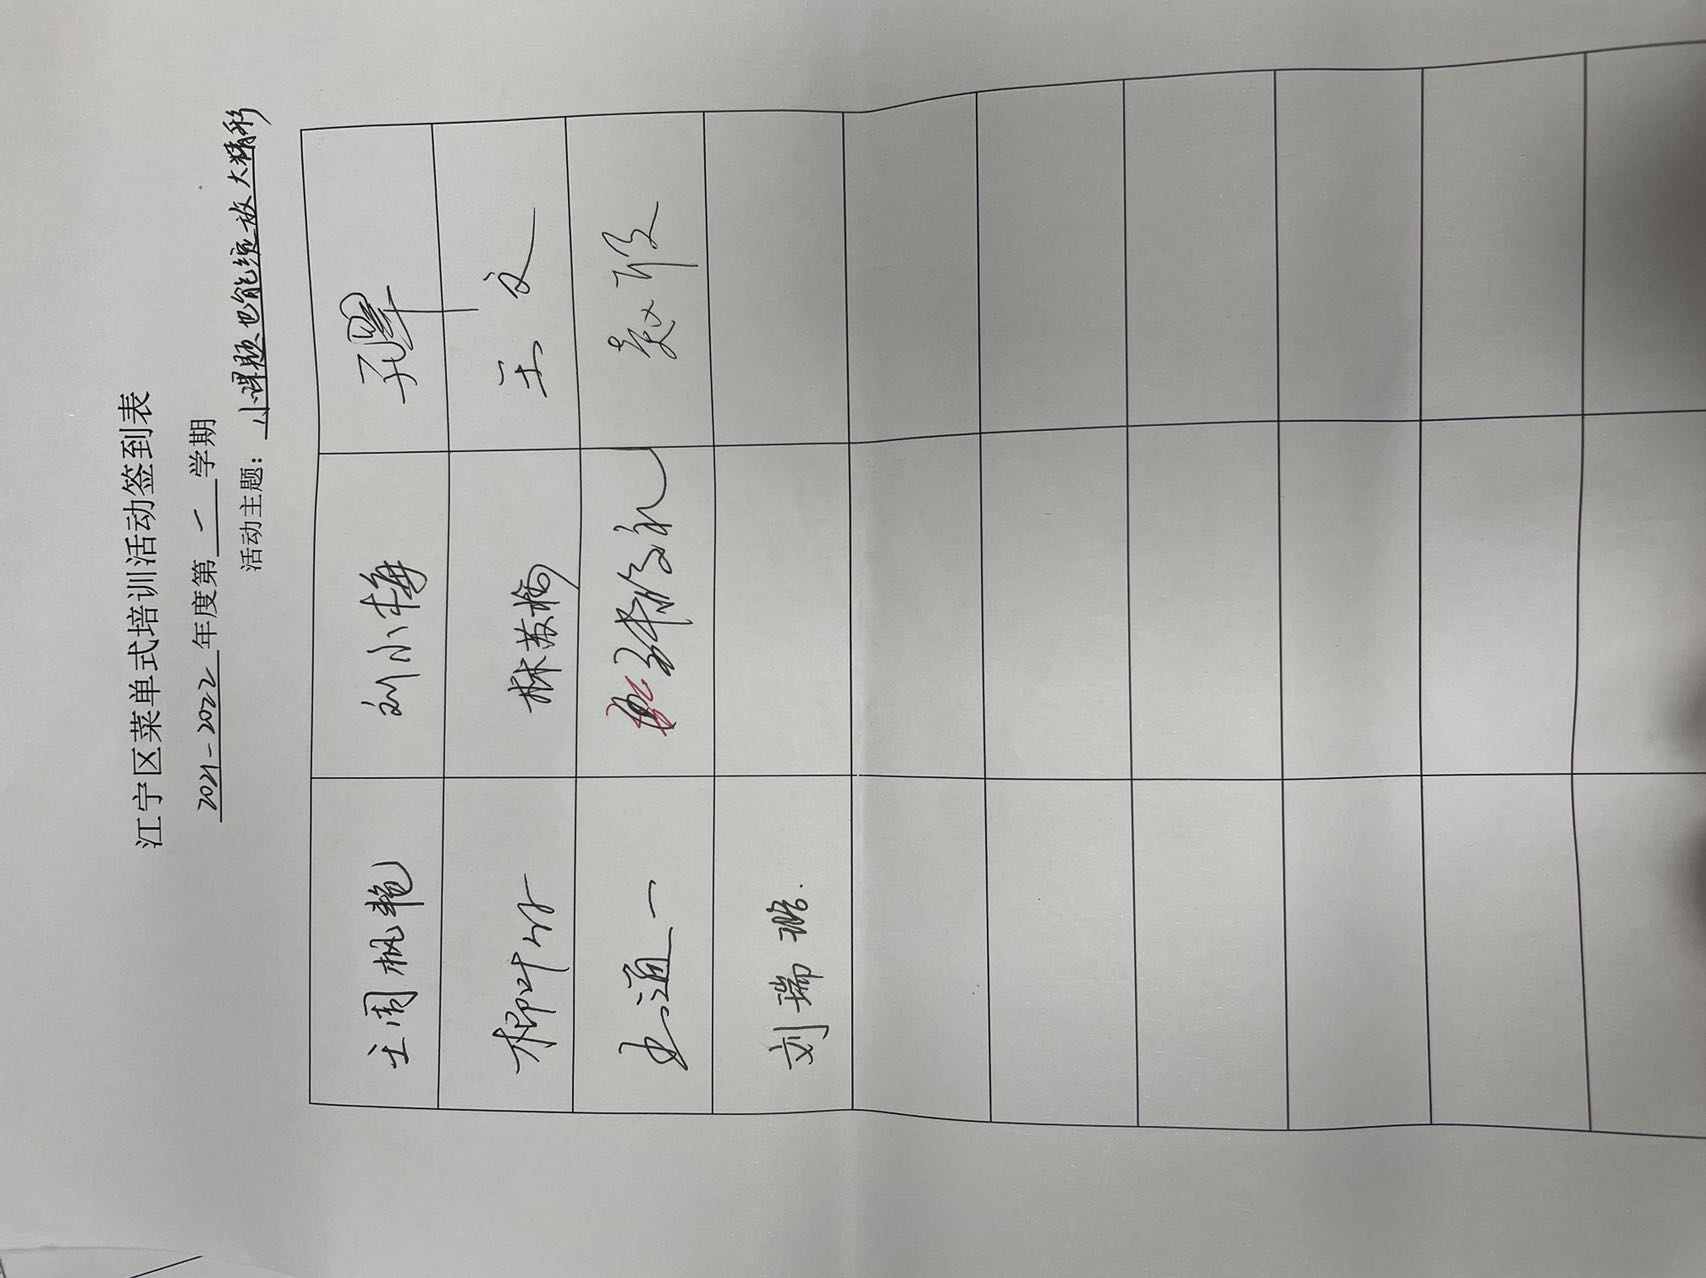 江宁区菜单式培训活动签到表
2021-2022年度第一学期
活动主题：小课题也能绽放大精彩
王周枫艳 刘小梅 孔
柳叶 林苏梅 王文
王通一 赵欣
刘瑞璐